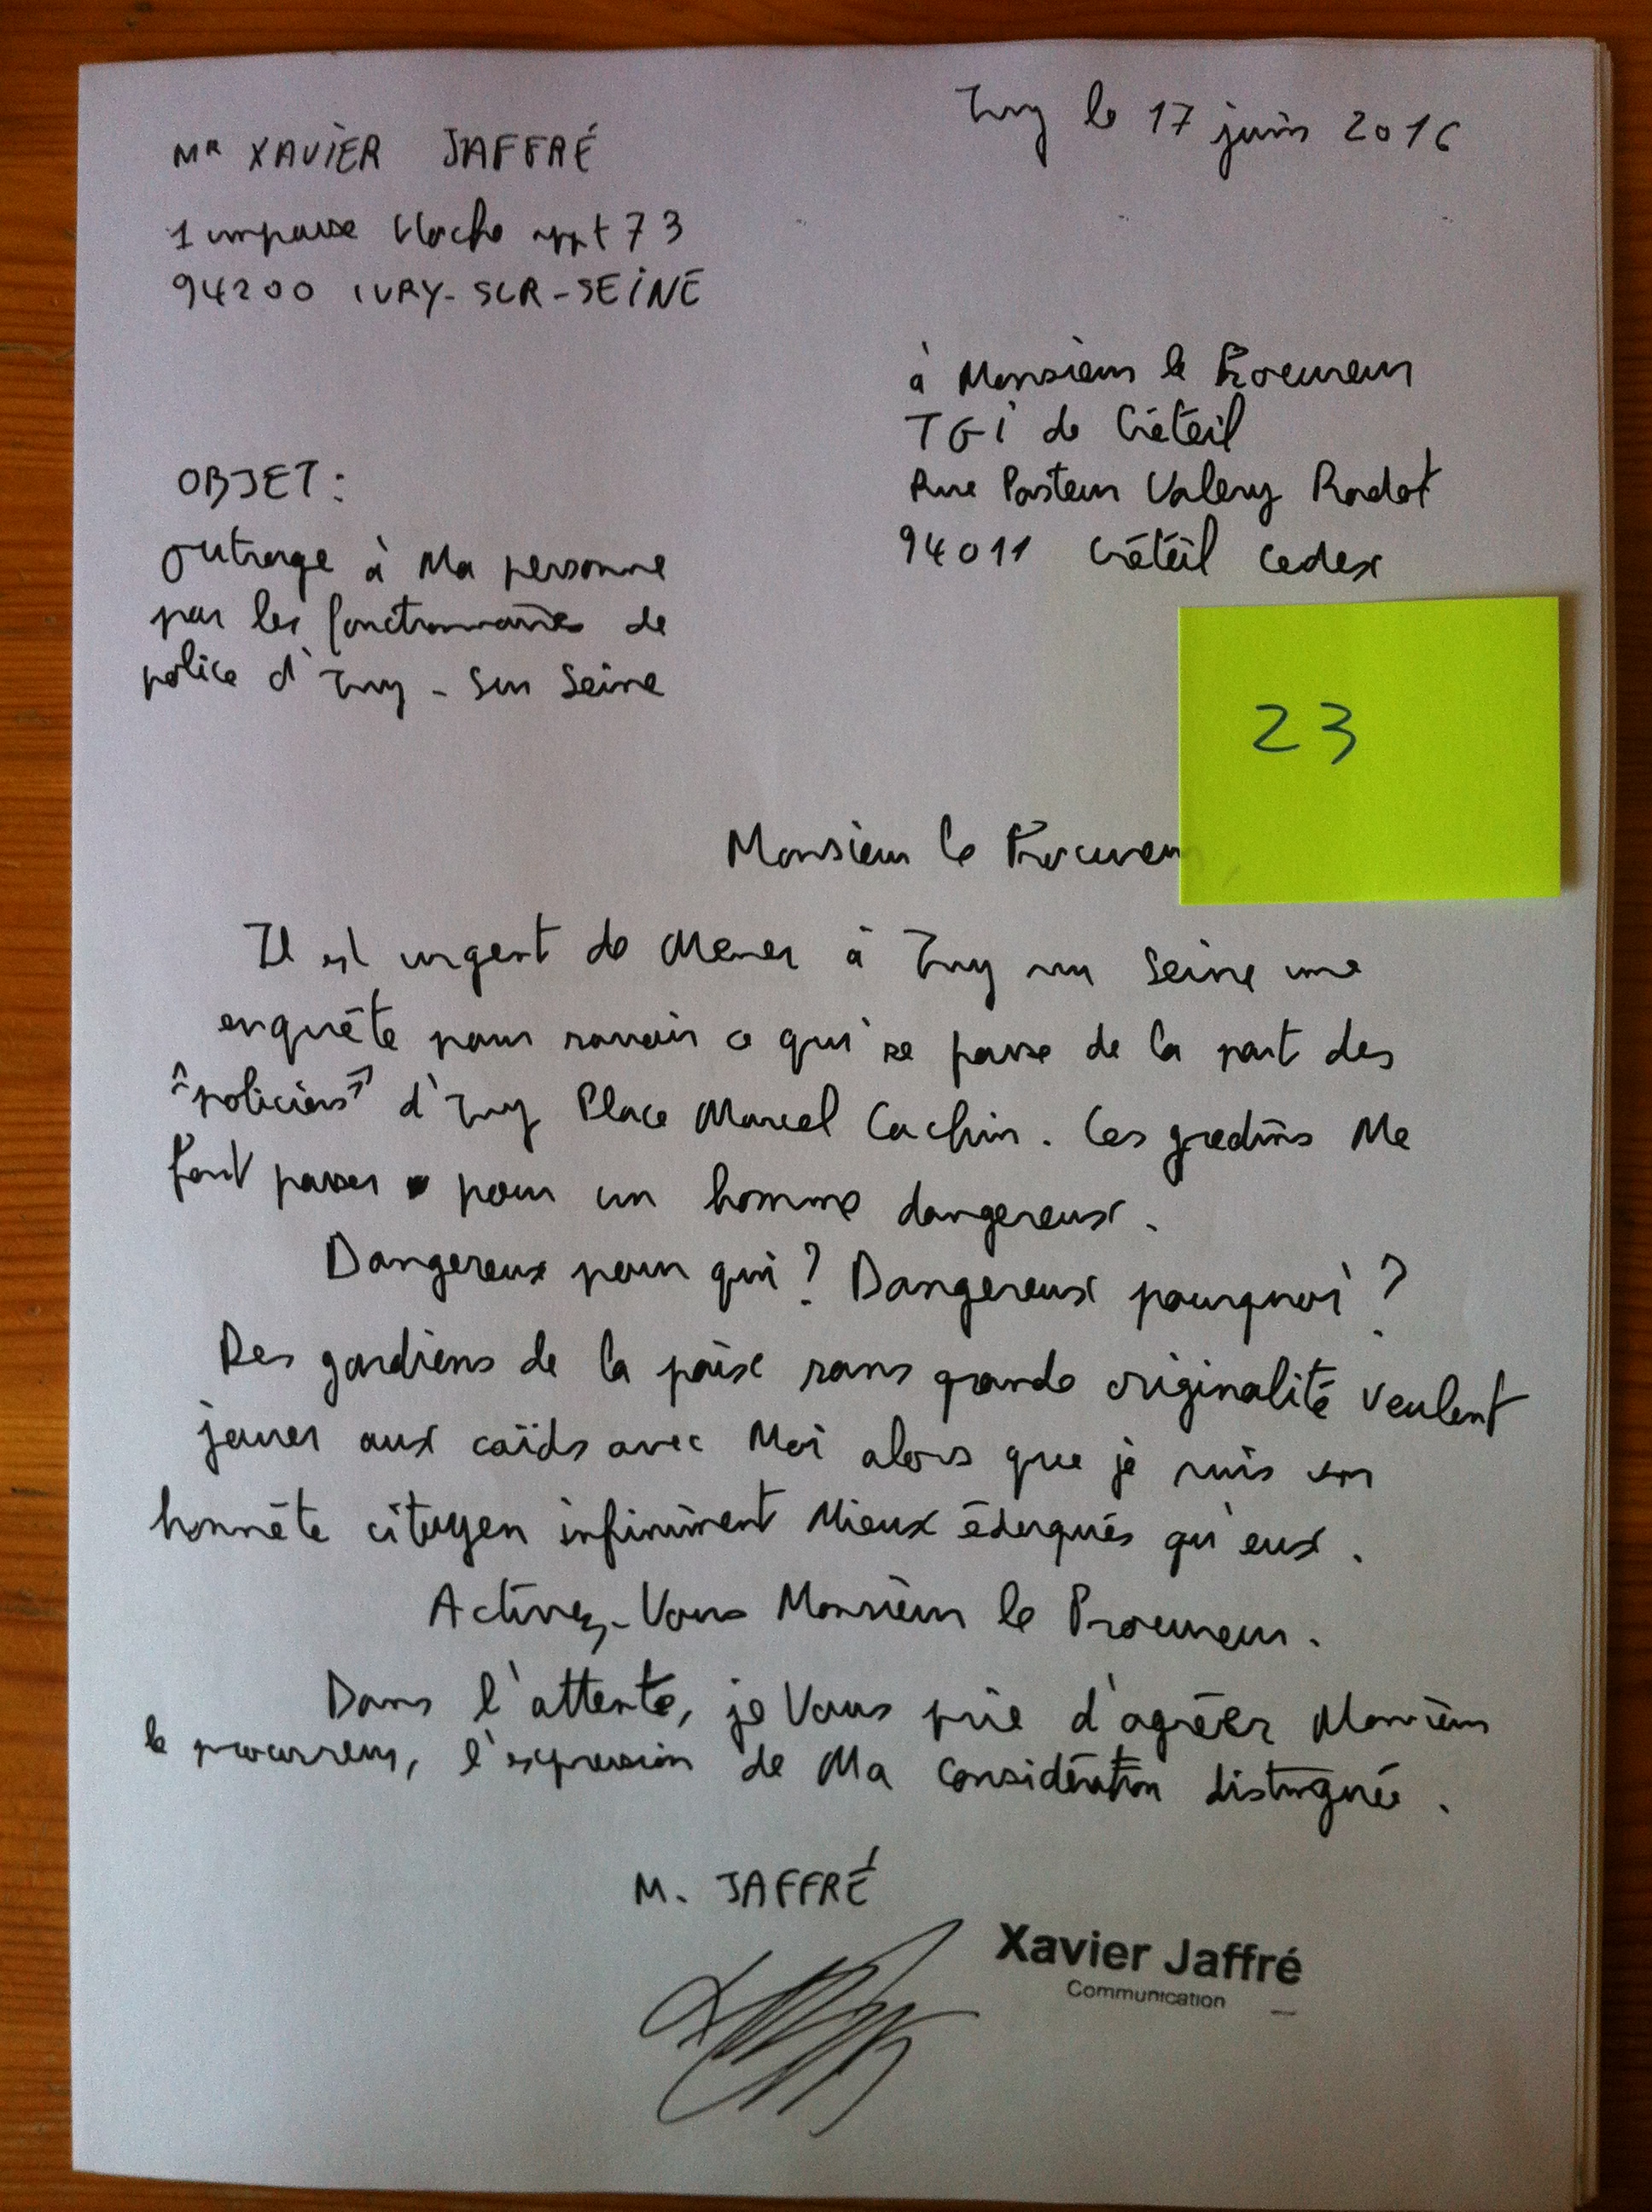 Ivry le 17 juin 2016
Mr XAVIER JAFFRÉ
1 impasse Hoche appt 73
94200 IVRY-SUR-SEINE
à Monsieur le Procureur
TGI de Créteil
Rue Pasteur Valery Radot
94011 Créteil Cedex
OBJET :
outrage à Ma personne
par les fonctionnaires de
police d'Ivry - sur Seine
23
Monsieur le Procureur
Il est urgent de Mener à Ivry sur Seine une
enquête pour savoir ce qui se passe de la part des
"policiers" d'Ivry Place Marcel Cachin. Ces gredins Me
font passer pour un homme dangereux.
Dangereux pour qui ? Dangereux pourquoi ?
Des gardiens de la paix sans grande originalité veulent
jouer aux caïds avec Moi alors que je suis un
honnête citoyen infiniment Mieux éduqués qu'eux.
Activez-Vous Monsieur le Procureur.
Dans l'attente, je Vous prie d'agréer Monsieur
le procureur, l'expression de Ma Considération distinguée.
M. JAFFRÉ
Xavier Jaffré
Communication